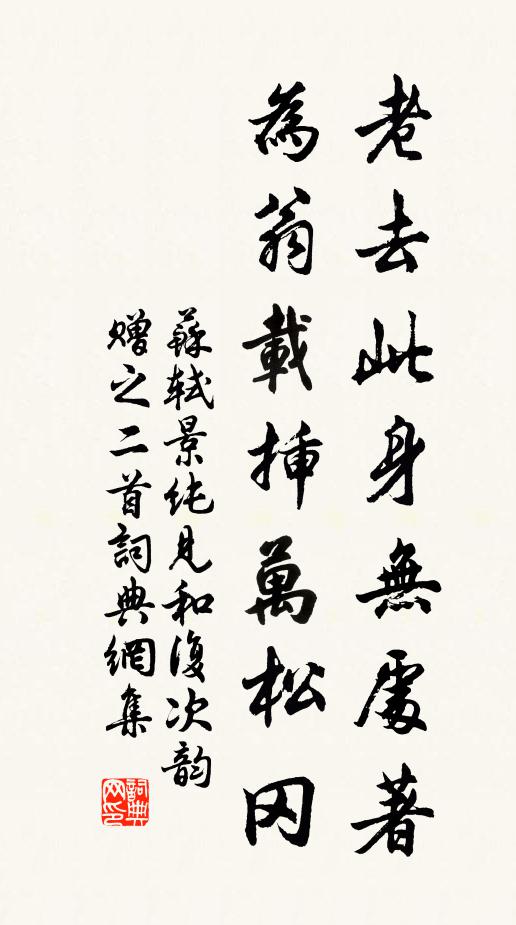 老去此身無處著
為翁栽插萬松冈
蘇軾景純見和復次韵
贈之二首詞典網集
詞典网印